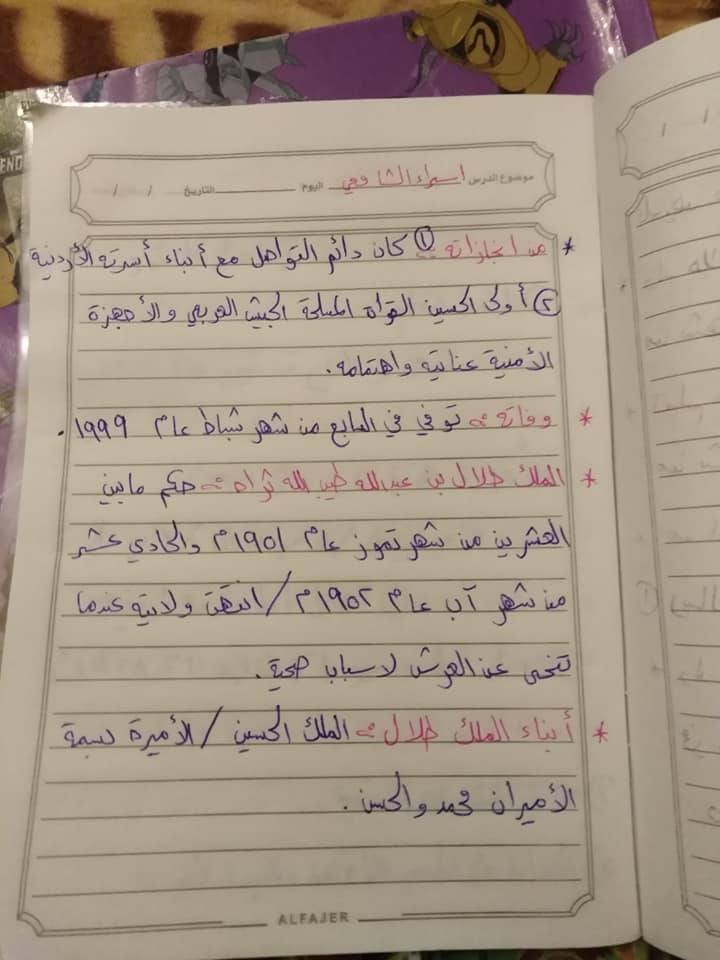 موضوع الدرس اسراء الشافعي اليوم التاريخ / /
* من انجازاته :- ① كان دائم التواصل مع أبناء أسرته الأردنية
② أولى الحسين القوات المسلحة الجيش العربي والأجهزة
الأمنية عنايته واهتمامه.
* وفاته :- توفي في السابع من شهر شباط عام ١٩٩٩.
* الملك طلال بن عبدالله طيب الله ثراه :- حكم ما بين
العشرين من شهر تموز عام ١٩٥١م والحادي عشر
من شهر آب عام ١٩٥٢م / انتهت ولايته عندما
تنحى عن العرش لاسباب صحية.
* أبناء الملك طلال :- الملك الحسين / الأميرة بسمة
الأميران محمد والحسن.
ALFAJER